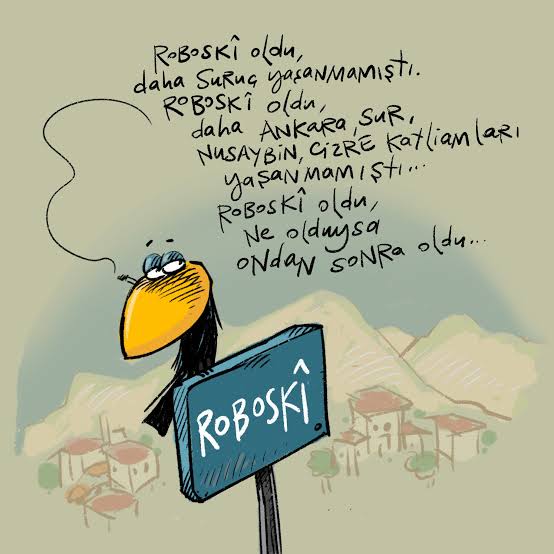 ROBOSKÎ oldu,
daha SURUÇ yaşanmamıştı.
ROBOSKÎ oldu,
daha ANKARA, SUR,
NUSAYBİN, CİZRE KATLİAMLARI
yaşanmamıştı...
ROBOSKÎ oldu,
NE olduysa
ONDAN SONRA oldu...
ROBOSKÎ.